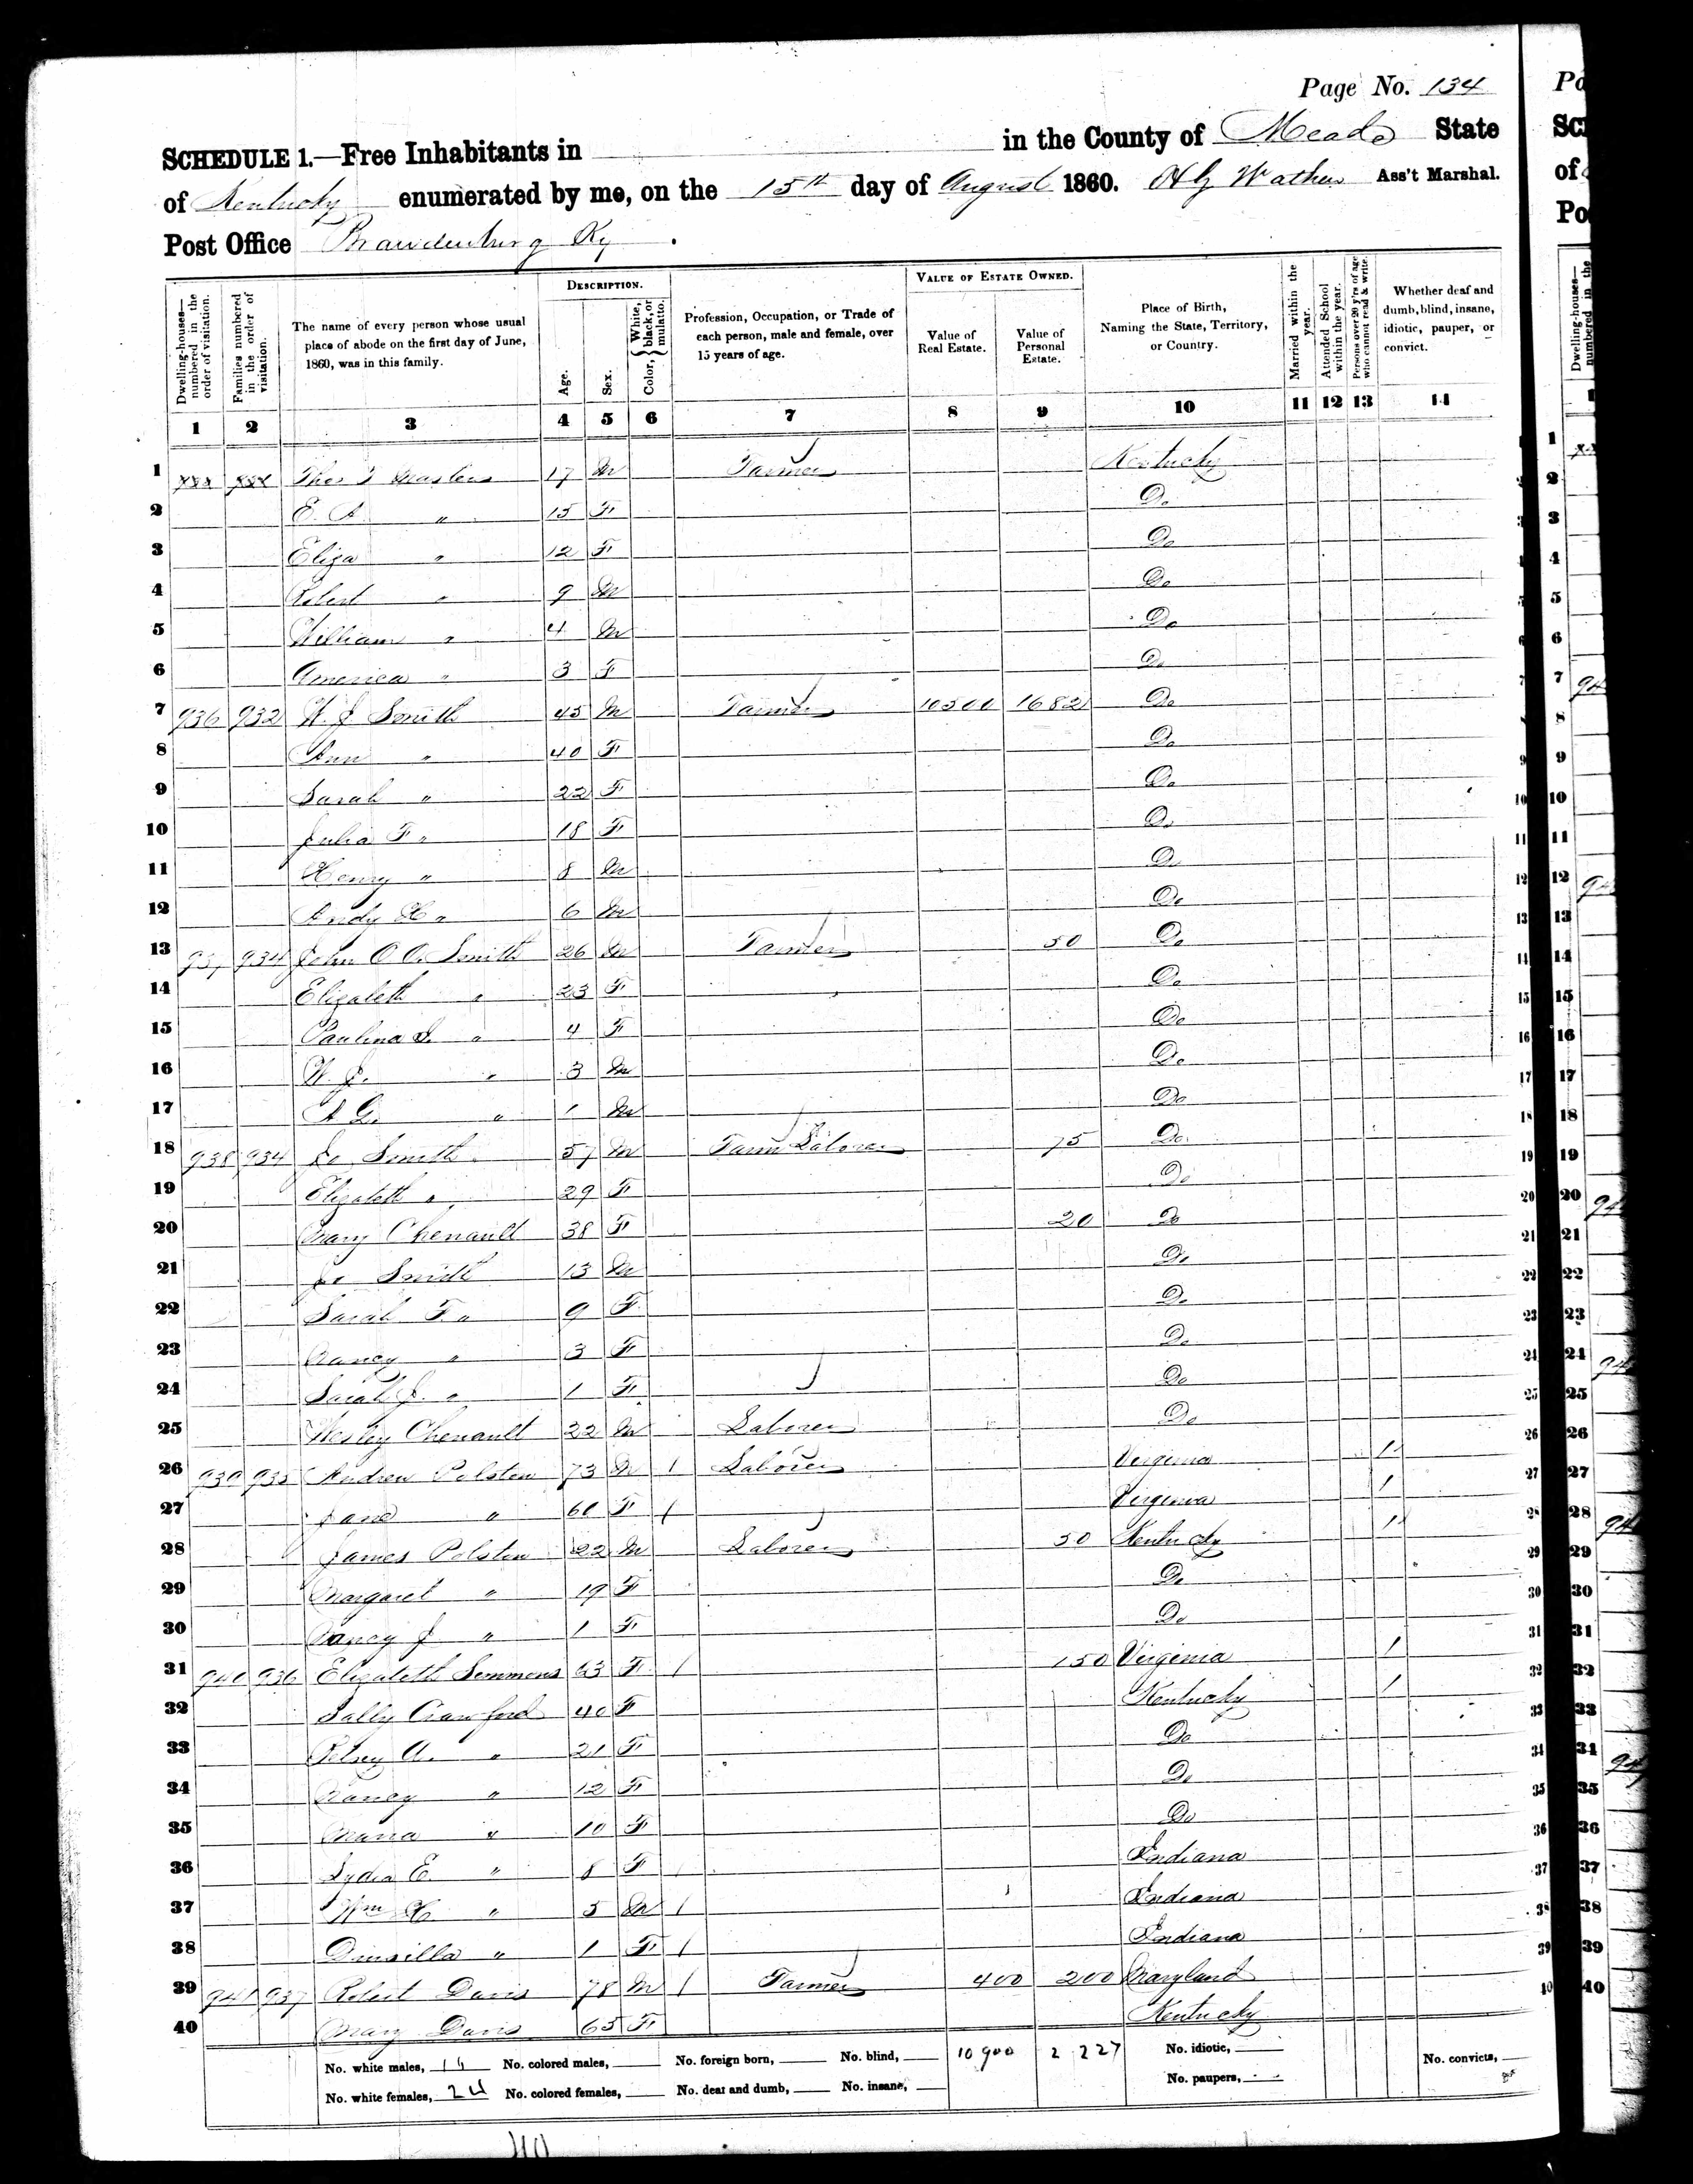 Page No. 134
SCHEDULE 1.—Free Inhabitants in in the County of Meade State
of Kentucky enumerated by me, on the 15th day of August 1860. Ass't Marshal.
Post Office Brandenburg Ky.
Dwelling-houses—numbered in the order of visitation.
Families numbered in the order of visitation.
The name of every person whose usual place of abode on the first day of June, 1860, was in this family.
DESCRIPTION.
Age.
Sex.
Color, White, black, or mulatto.
Profession, Occupation, or Trade of each person, male and female, over 15 years of age.
VALUE OF ESTATE OWNED.
Value of Real Estate.
Value of Personal Estate.
Place of Birth, Naming the State, Territory, or Country.
Married within the year.
Attended School within the year.
Persons over 20 y'rs of age who cannot read & write.
Whether deaf and dumb, blind, insane, idiotic, pauper, or convict.
1 2 3 4 5 6 7 8 9 10 11 12 13 14
1 17 M Farmer Kentucky
2 E. A. " 15 F Do
3 Eliza " 12 F Do
4 Robert " 9 M Do
5 William " 4 M Do
6 America " 3 F Do
7 936 932 W. J. Smith 45 M Farmer 10500 1682 Do
8 Ann " 40 F Do
9 Sarah " 22 F Do
10 Julia F " 18 F Do
11 Henry " 8 M Do
12 Andy H " 6 M Do
13 937 934 John O. Smith 26 M Farmer 50 Do
14 Elizabeth " 23 F Do
15 Paulina S. " 4 F Do
16 W. J. " 3 M Do
17 A G. " 1 M Do
18 938 934 Jo Smith 57 M Farm Laborer 75 Do
19 Elizabeth " 29 F Do
20 Mary Chenault 38 F 20 Do
21 Jo Smith 13 M Do
22 Sarah F " 9 F Do
23 Nancy " 3 F Do
24 Sarah J. " 1 F Do
25 Wesley Chenault 22 M Laborer Do
26 939 935 Andrew Polston 73 M 1 Laborer Virginia 1
27 Jane " 60 F 1 Virginia 1
28 James Polston 22 M Laborer 50 Kentucky 1
29 Margaret " 19 F Do
30 Nancy J " 1 F Do
31 940 936 Elizabeth Semmons 63 F 1 150 Virginia 1
32 Sally Crawford 40 F Kentucky 1
33 Betsey A. " 21 F Do
34 Nancy " 12 F Do
35 Maria " 10 F Do
36 Lydia E. " 8 F 1 Indiana
37 Wm H " 5 M 1 Indiana
38 " 1 F 1 Indiana
39 941 937 Robert Davis 78 M 1 Farmer 400 200 Maryland
40 Mary Davis 65 F Kentucky
No. white males, 16 No. colored males, No. foreign born, No. blind, 10900 2 227 No. idiotic, No. convicts,
No. white females, 24 No. colored females, No. deaf and dumb, No. insane, No. paupers,
40